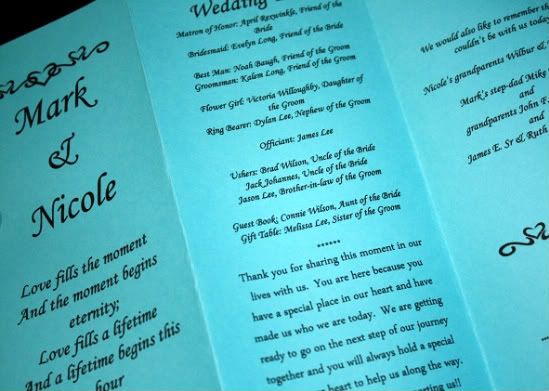 Mark
&
Nicole
Love fills the moment
And the moment begins
eternity;
Love fills a lifetime
And a lifetime begins this
hour
Wedding
Matron of Honor: April Rexwinkle, Friend of the
Bride
Bridesmaid: Evelyn Long, Friend of the Bride
Best Man: Noah Baugh, Friend of the Groom
Groomsman: Kalem Long, Friend of the Groom
Flower Girl: Victoria Willoughby, Daughter of
the Groom
Ring Bearer: Dylan Lee, Nephew of the Groom
Officiant: James Lee
Ushers: Brad Wilson, Uncle of the Bride
Jack Johannes, Uncle of the Bride
Jason Lee, Brother-in-law of the Groom
Guest Book; Connie Wilson, Aunt of the Bride
Gift Table: Melissa Lee, Sister of the Groom
******
Thank you for sharing this moment in our
lives with us. You are here because you
have a special place in our heart and have
made us who we are today. We are getting
ready to go on the next step of our journey
together and you will always hold a special
heart to help us along the way.
us!!
We would also like to remember
couldn't be with us today
Nicole's grandparents Wilbur &
Mark's step-dad Mike
and
grandparents John
and
James E. Sr & Ruth